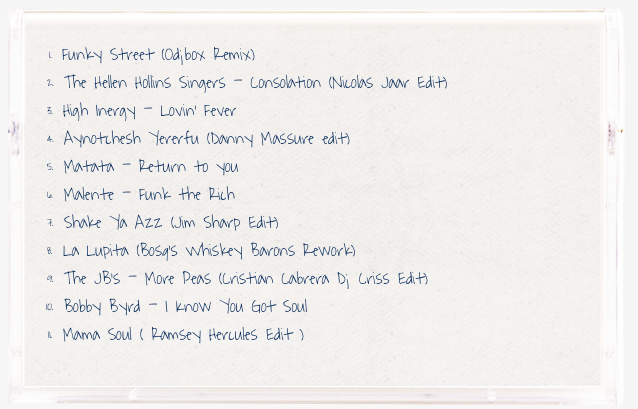 1. Funky Street (Odjbox Remix)
2. The Hellen Hollins Singers - Consolation (Nicolas Jaar Edit)
3. High Inergy - Lovin' Fever
4. Aynotchesh Yererfu (Danny Massure edit)
5. Matata - Return to you
6. Malente - Funk the Rich
7. Shake Ya Azz (Jim Sharp Edit)
8. La Lupita (Bosq's Whiskey Barons Rework)
9. The JB's - More Peas (Cristian Cabrera Dj Criss Edit)
10. Bobby Byrd - I Know You Got Soul
11. Mama Soul ( Ramsey Hercules Edit )